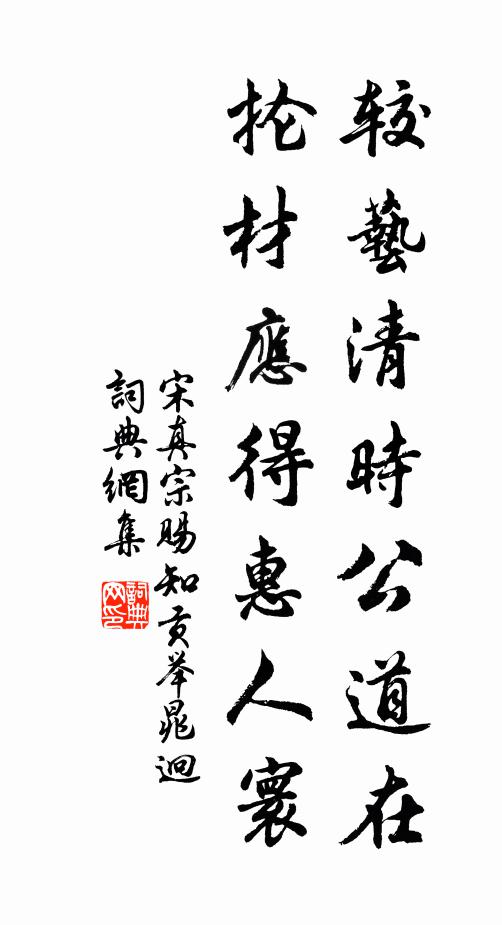 较藝清時公道在
抡材應得惠人寰
宋真宗賜知贡举晁迥
詞典網集
詞典
网印